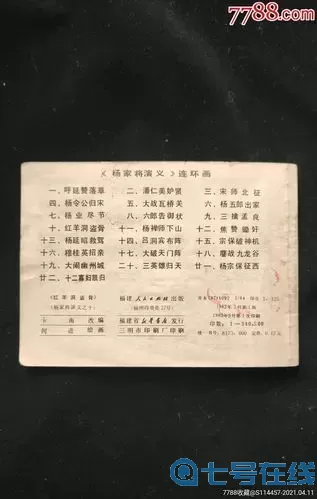 7788.com
《杨家将演义》连环画
一、呼延赞落草 二、潘仁美妒贤 三、宋师北征
四、杨令公归宋 五、大战瓦桥关 六、杨五郎出家
七、杨业尽节 八、六郎告御状 九、三擒孟良
十、红羊洞盗骨 十一、杨禅师下山 十二、焦赞锄奸
十三、杨延昭救驾 十四、吕洞宾布阵 十五、宗保破神机
十六、穆桂英招亲 十七、大破天门阵 十八、鏖战九龙谷
十九、大闹幽州城 二十、三英雄归天 廿一、杨宗保征西
廿二、十二寡妇显归
《红羊洞盗骨》
(杨家将演义之十)
福建人民出版社出版
南改编
何进绘画
福建省新华书店发行
三明市印刷厂印刷
印数:1—540,500
定价:0.12元
七号在线
7788收藏@S114457-2021.04.11